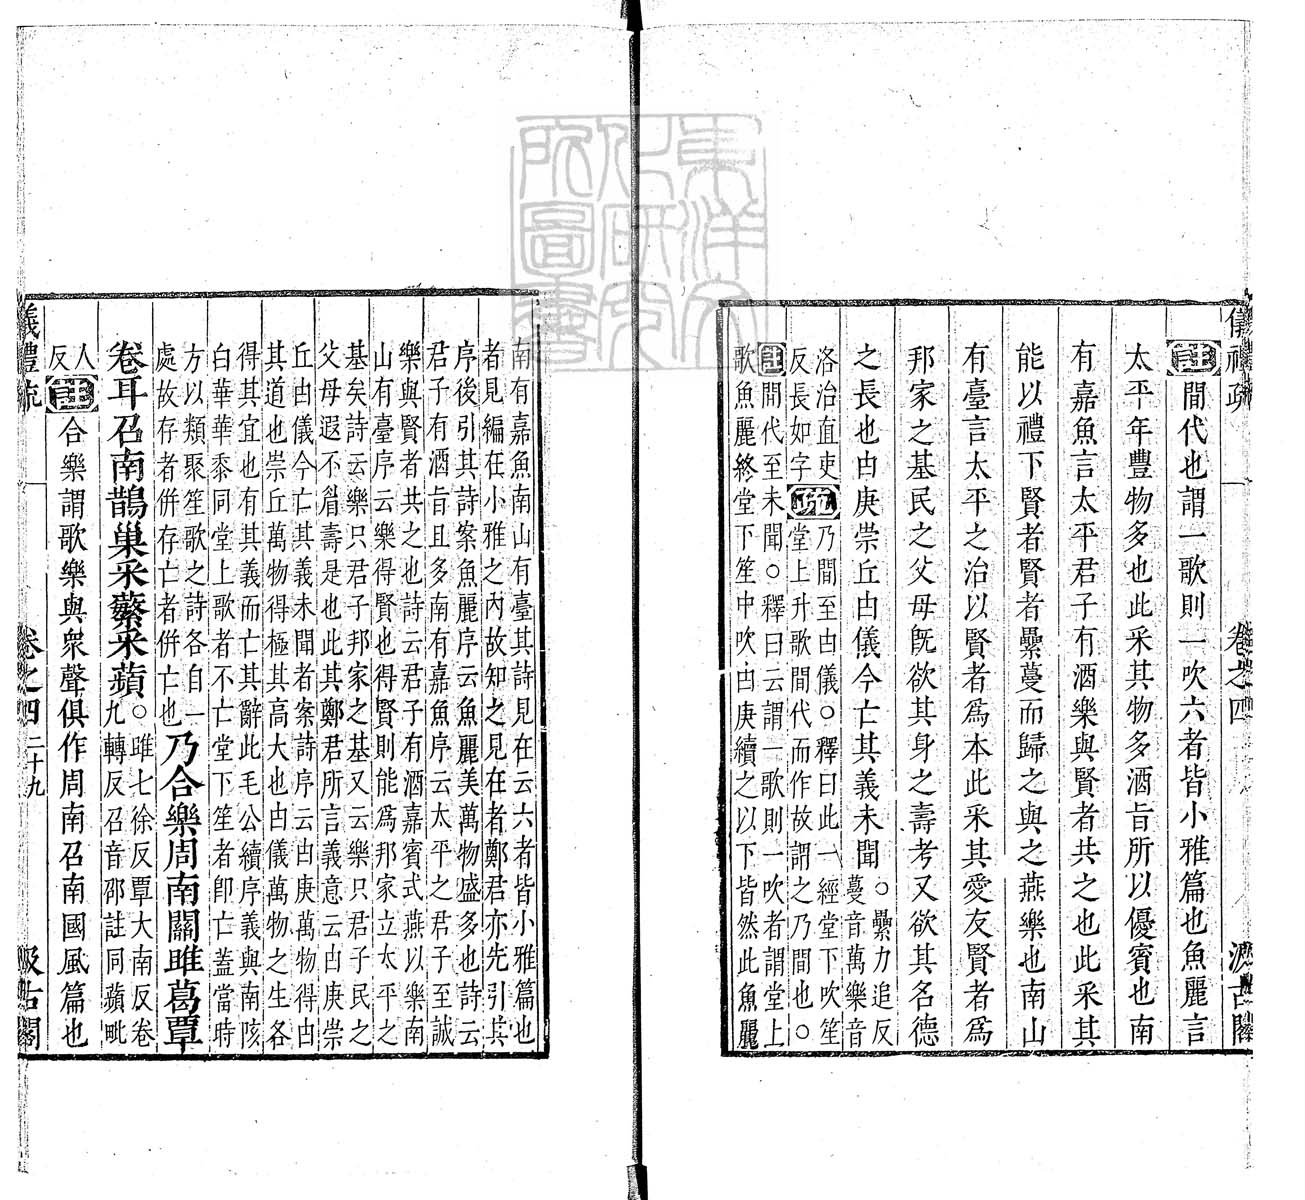 儀禮疏 卷之四 汲古閣
註間代也謂一歌則一吹六者皆小雅篇也魚麗言
太平年豐物多也此采其物多酒旨所以優賓也南
有嘉魚言太平君子有酒樂與賢者共之也此采其
能以禮下賢者賢者纍蔓而歸之與之燕樂也南山
有臺言太平之治以賢者爲本此采其愛友賢者爲
邦家之基民之父母旣欲其身之壽考又欲其名德
之長也由庚崇丘由儀今亡其義未聞○纍力追反
蔓音萬樂音
洛治直吏
反長如字疏乃間至由儀○釋曰此一經堂下吹笙
堂上升歌間代而作故謂之乃間也○
註間代至未聞○釋曰云謂一歌則一吹者謂堂上
歌魚麗終堂下笙中吹由庚續之以下皆然此魚麗
南有嘉魚南山有臺其詩見在云六者皆小雅篇也
者見編在小雅之內故知之見在者鄭君亦先引其
序後引其詩案魚麗序云魚麗美萬物盛多也詩云
君子有酒旨且多南有嘉魚序云太平之君子至誠
樂與賢者共之也詩云君子有酒嘉賓式燕以樂南
山有臺序云樂得賢也得賢則能爲邦家立太平之
基矣詩云樂只君子邦家之基又云樂只君子民之
父母遐不眉壽是也此其鄭君所言義意云由庚崇
丘由儀今亡其義未聞者案詩序云由庚萬物得由
其道也崇丘萬物得極其高大也由儀萬物之生各
得其宜也有其義而亡其辭此毛公續序義與南陔
白華華黍同堂上歌者不亡堂下笙者卽亡蓋當時
方以類聚笙歌之詩各自一
處故存者併存亡者併亡也乃合樂周南關雎葛覃
卷耳召南鵲巢采蘩采蘋○雎七徐反覃大南反卷
九轉反召音邵註同蘋毗
人
反註合樂謂歌樂與衆聲俱作周南召南國風篇也
儀禮疏 卷之四 二十九 汲古閣